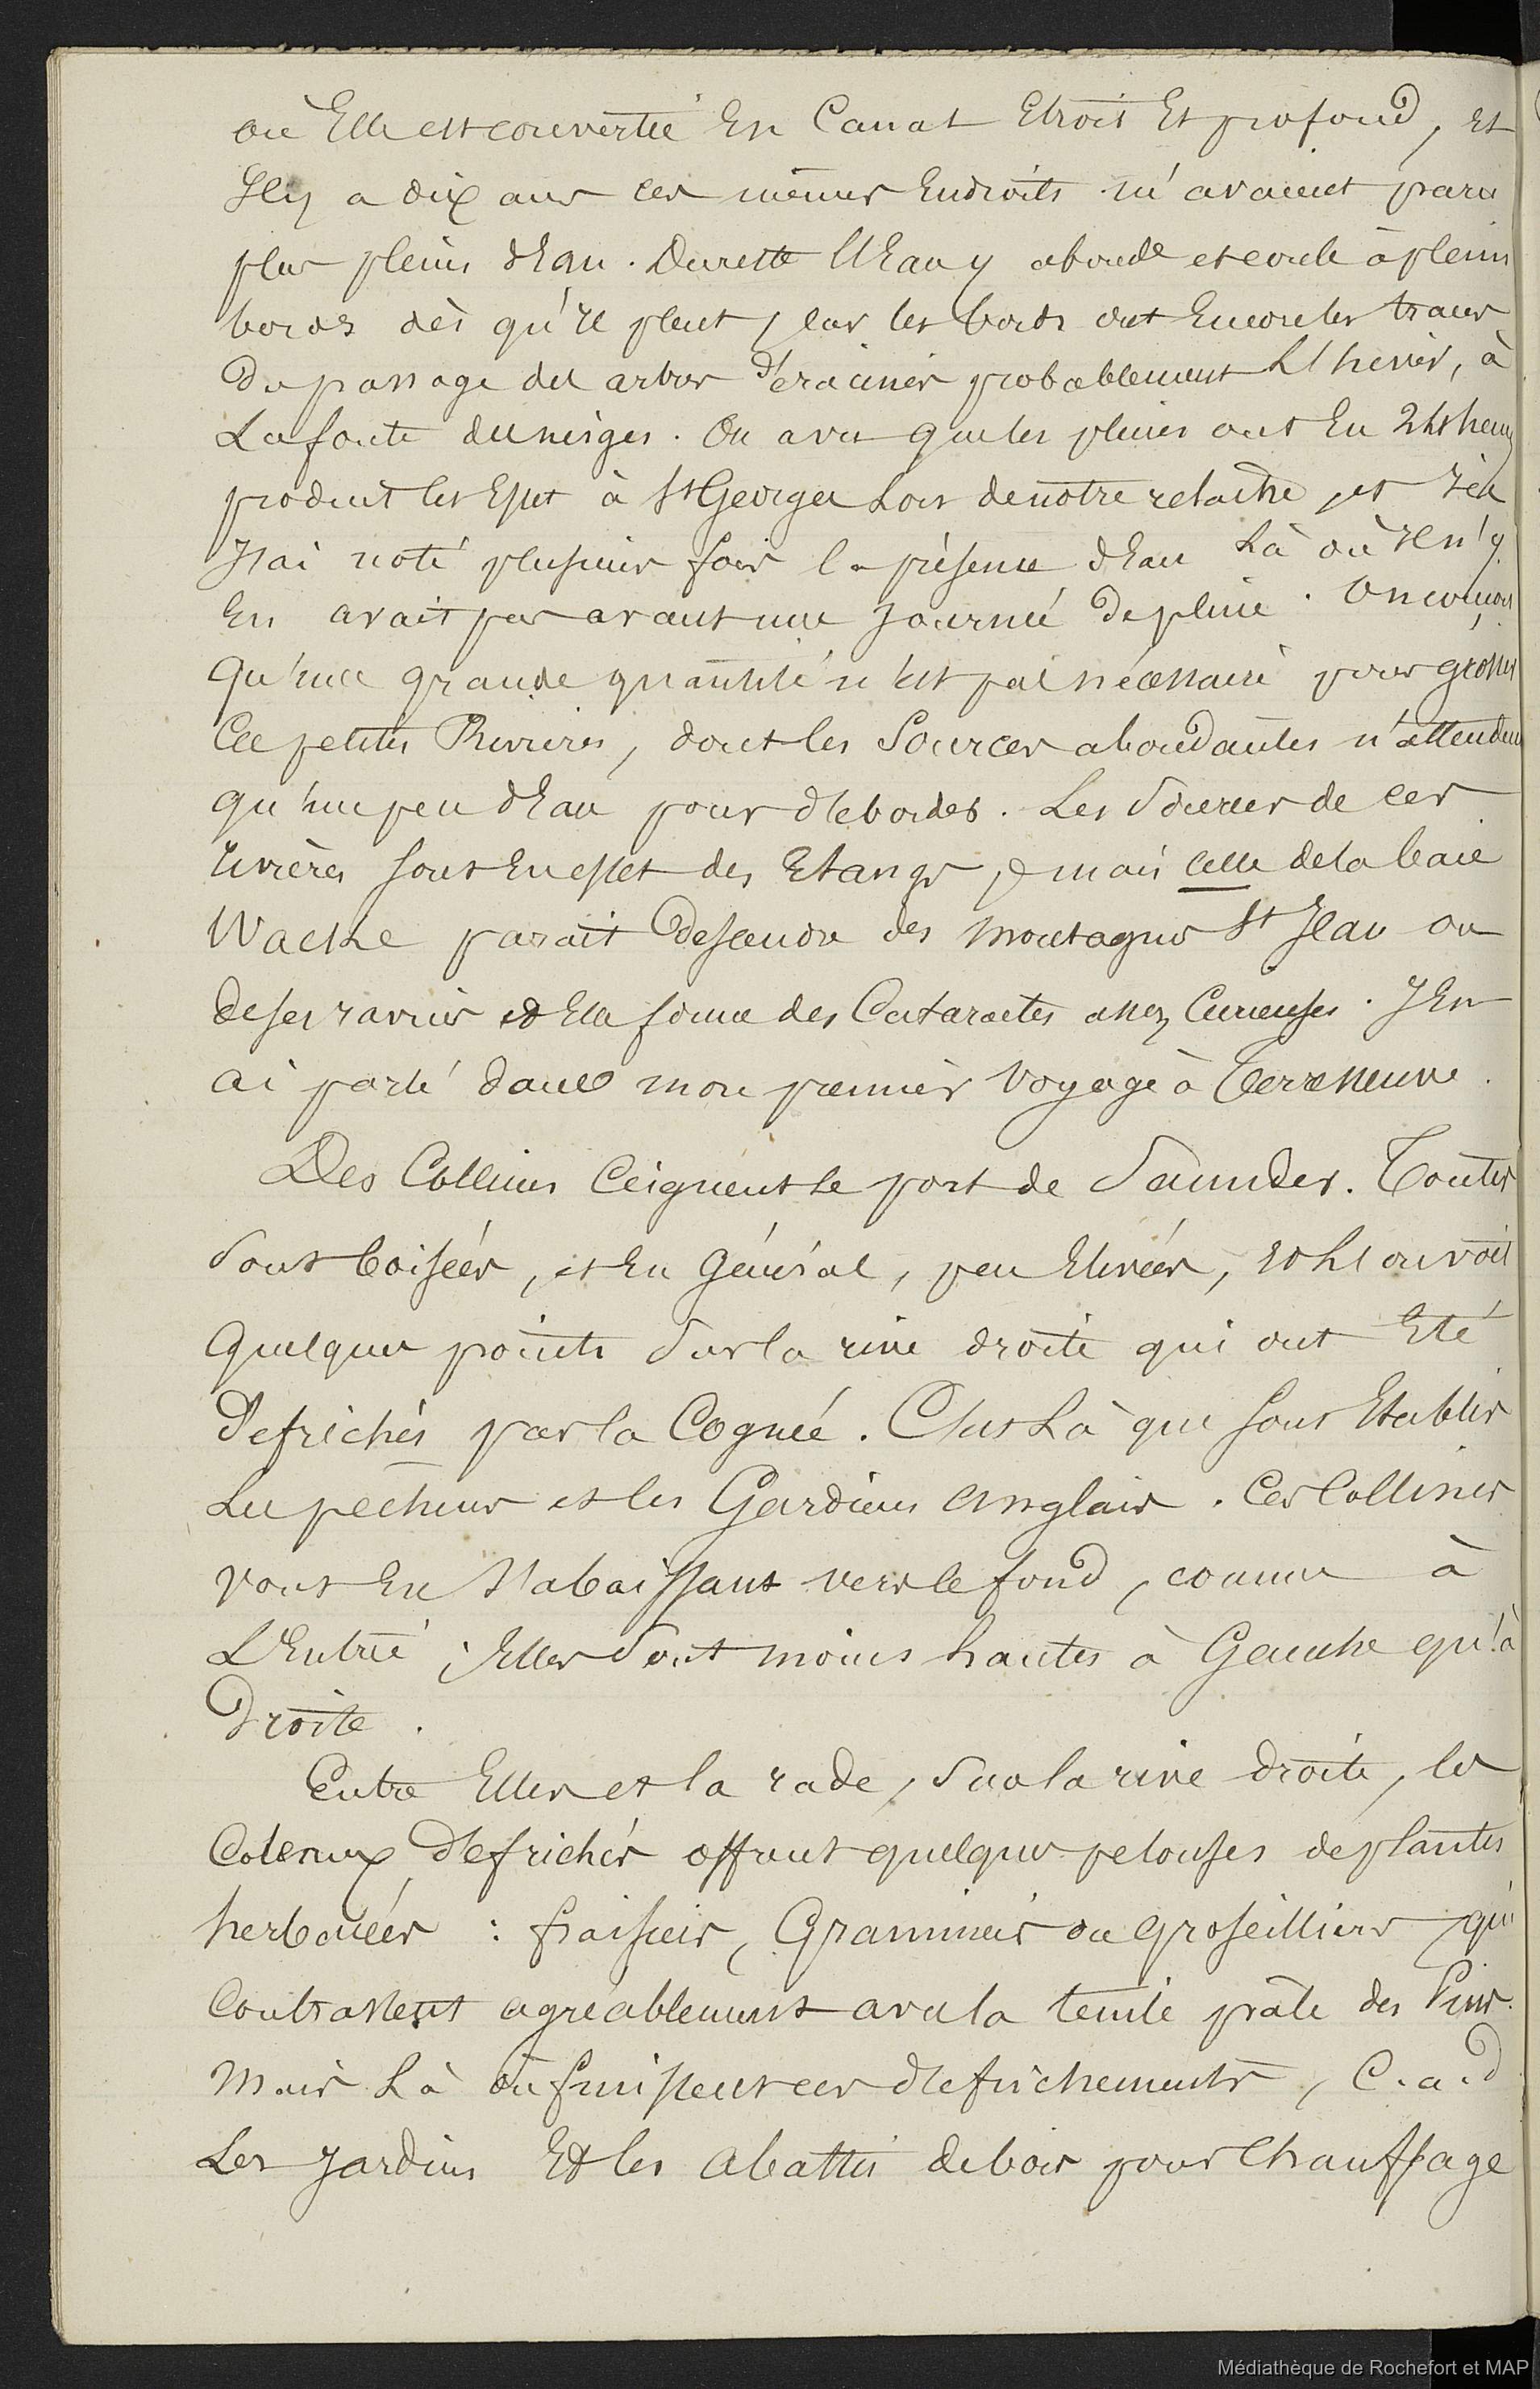 où Elle est convertie En Canal Etroit Et profond, et
Il y a dix ans ces mêmes Endroits m'avaient paru
plus pleins d'Eau. Dureste l'Eau y abonde et coule à pleins
bords dès qu'il pleut, car les bords ont Encore les traces
Du passage des arbres déracinés probablement L'hiver, à
La fonte des neiges. On a vu que les pluies ont En 24 heures
produit les Effet à St Georges Lors de notre relache, et
J'ai noté plusieurs fois la présence d'Eau Là où il n'y
En avait pas avant une journée De pluie. On conçoit
Qu'une grande quantité n'est pas nécessaire pour grossir
Ces petites Rivières, dont les Sources abondantes n'attendent
qu'un peu d'Eau pour déborder. Les Sources de ces
rivières sont En effet des Etangs, mais celle de la baie
Wacke parait Descendre des montagnes St Jean ou
de ses ravins et Elle forme des Cataractes assez Curieuses. J'En
ai parlé dans mon premier Voyage à Terre Neuve.
Des Collines Ceignent le port de Saunders. Toutes
Sont boisées, et En Général, peu Elevées, et l'on voit
Quelques points Sur la rive droite qui ont Eté
Défrichés par la Cognée. C'est Là que sont Etablis
Les pêcheurs et les Gardiens anglais. Ces Collines
vont En s'abaissant vers le fond, comme à
L'Entrée; Elles Sont moins hautes à Gauche qu'à
Droite.
Entre Elles et la rade, Sur la rive droite, les
Coteaux Défrichés offrent quelques pelouses de plantes
herbacées : fraisiers, Graminées ou groseilliers qui
Contrastent agréablement avec la teinte pâle des Pins.
Mais Là où finissent ces défrichements, C.a.d
Les Jardins Et les abattis de bois pour Chauffage
Médiathèque de Rochefort et MAP